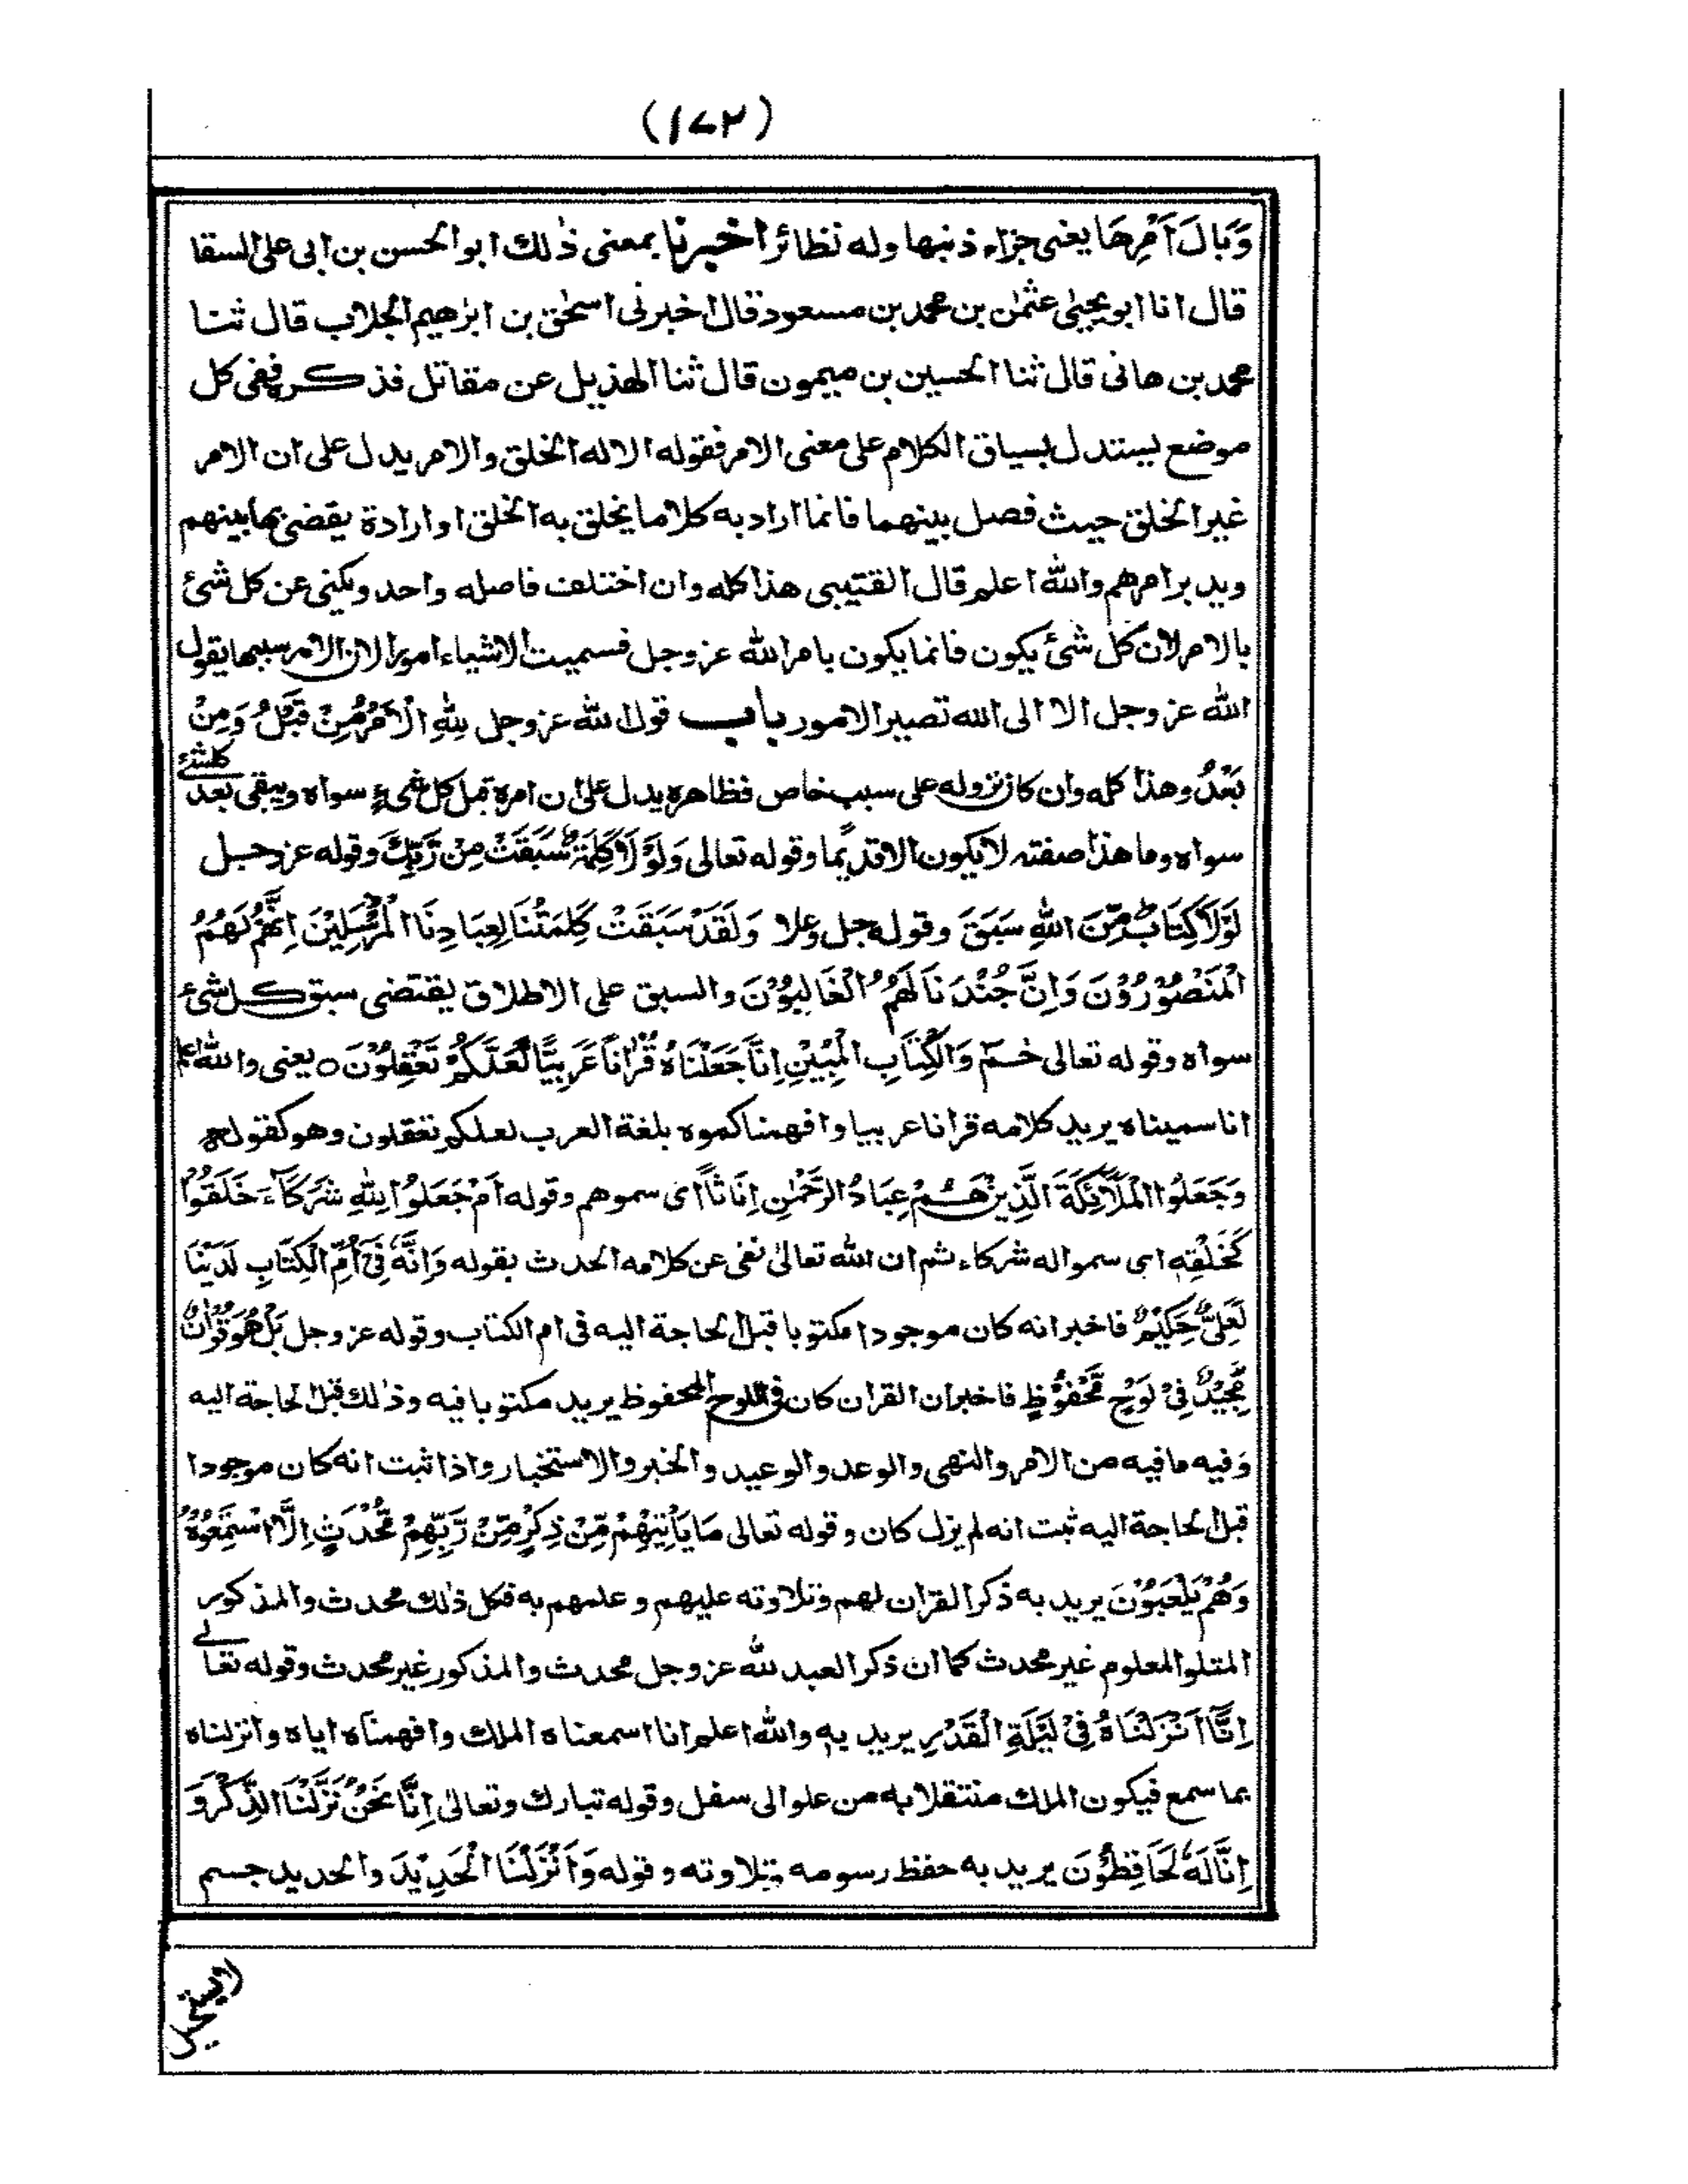 (١٧٢)
وَبَالَ اَمْرِهَا يعنى جزاء ذنبها وله نظائر اخبرنا بمعنى ذٰلك ابو الحسن بن ابى على السقا
قال انا ابو يحيىٰ عثمٰن بن محمد بن مسعود قال اخبرنى اسحٰق بن ابرٰهيم الجلاب قال ثنا
محمد بن هانى قال ثنا الحسين بن ميمون قال ثنا الهذيل عن مقاتل فذكره ففى كل
موضع يستدل بسياق الكلام على معنى الامر فقوله الا له الخلق والامر يدل على ان الامر
غير الخلق حيث فصل بينهما فانما اراد به كلاما يخلق به الخلق او ارادة يقضى بها بينهم
ويدبر امرهم والله اعلم قال القتيبى هذا كله وان اختلف فاصله واحد ويكنى عن كل شئ
بالامر لان كل شئ يكون فانما يكون بامر الله عز وجل فسميت الاشياء امورا لان الامر سببها يقول
الله عز وجل الا الى الله تصير الامور باب قول الله عز وجل لِلّٰهِ الْاَمْرُ مِنْ قَبْلُ وَمِنْ
بَعْدُ وهذا كله وان كان نزوله على سبب خاص فظاهره يدل على ان امره قبل كل شىء سواه ويبقى بعد كلشئ
سواه وما هذا صفته لا يكون الا قديما وقوله تعالى وَلَوْلَا كَلِمَةٌ سَبَقَتْ مِنْ رَّبِّكَ وقوله عز وجل
لَوْلَا كِتَابٌ مِّنَ اللهِ سَبَقَ وقوله جل وعلا وَلَقَدْ سَبَقَتْ كَلِمَتُنَا لِعِبَادِنَا الْمُرْسَلِيْنَ اِنَّهُمْ لَهُمُ
الْمَنْصُوْرُوْنَ وَاِنَّ جُنْدَنَا لَهُمُ الْغَالِبُوْنَ والسبق على الاطلاق يقتضى سبق كل شئ
سواه وقوله تعالى حٰمٓ وَالْكِتَابِ الْمُبِيْنِ اِنَّا جَعَلْنَاهُ قُرْاٰنًا عَرَبِيًّا لَّعَلَّكُمْ تَعْقِلُوْنَ ○ يعنى والله اعلم
انا سميناه يريد كلامه قرانا عربيا وافهمناكموه بلغة العرب لعلكم تعقلون وهو كقوله
وَجَعَلُوا الْمَلَائِكَةَ الَّذِيْنَ هُمْ عِبَادُ الرَّحْمٰنِ اِنَاثًا اى سموهم وقوله اَمْ جَعَلُوْا لِلّٰهِ شُرَكَآءَ خَلَقُوْا
كَخَلْقِهِ اى سموا له شركاء ثم ان الله تعالىٰ نفى عن كلامه الحدث بقوله وَاِنَّهٗ فِىْ اُمِّ الْكِتَابِ لَدَيْنَا
لَعَلِىٌّ حَكِيْمٌ فاخبر انه كان موجودا مكتوبا قبل الحاجة اليه فى ام الكتاب وقوله عز وجل بَلْ هُوَ قُرْاٰنٌ
مَّجِيْدٌ فِىْ لَوْحٍ مَّحْفُوْظٍ فاخبر ان القران كان فى اللوح المحفوظ يريد مكتوبا فيه وذٰلك قبل الحاجة اليه
وَفيه ما فيه من الامر والنهى والوعد والوعيد والخبر والاستخبار واذا ثبت انه كان موجودا
قبل الحاجة اليه ثبت انه لم يزل كان وقوله تعالى مَا يَاْتِيْهِمْ مِّنْ ذِكْرٍ مِّنْ رَّبِّهِمْ مُّحْدَثٍ اِلَّا اسْتَمَعُوْهُ
وَهُمْ يَلْعَبُوْنَ يريد به ذكر القران لهم وتلاوته عليهم وعلمهم به فكل ذٰلك محدث والمذكور
المتلو المعلوم غير محدث كما ان ذكر العبد لله عز وجل محدث والمذكور غير محدث وقوله تعالے
اِنَّا اَنْزَلْنَاهُ فِىْ لَيْلَةِ الْقَدْرِ يريد به والله اعلم انا اسمعناه الملك وافهمناه اياه وانزلناه
بما سمع فيكون الملك منتقلا به من علو الى سفل وقوله تبارك وتعالىٰ اِنَّا نَحْنُ نَزَّلْنَا الذِّكْرَ وَ
اِنَّا لَهٗ لَحَافِظُوْنَ يريد به حفظ رسومه وتلاوته وقوله وَاَنْزَلْنَا الْحَدِيْدَ والحديد جسم